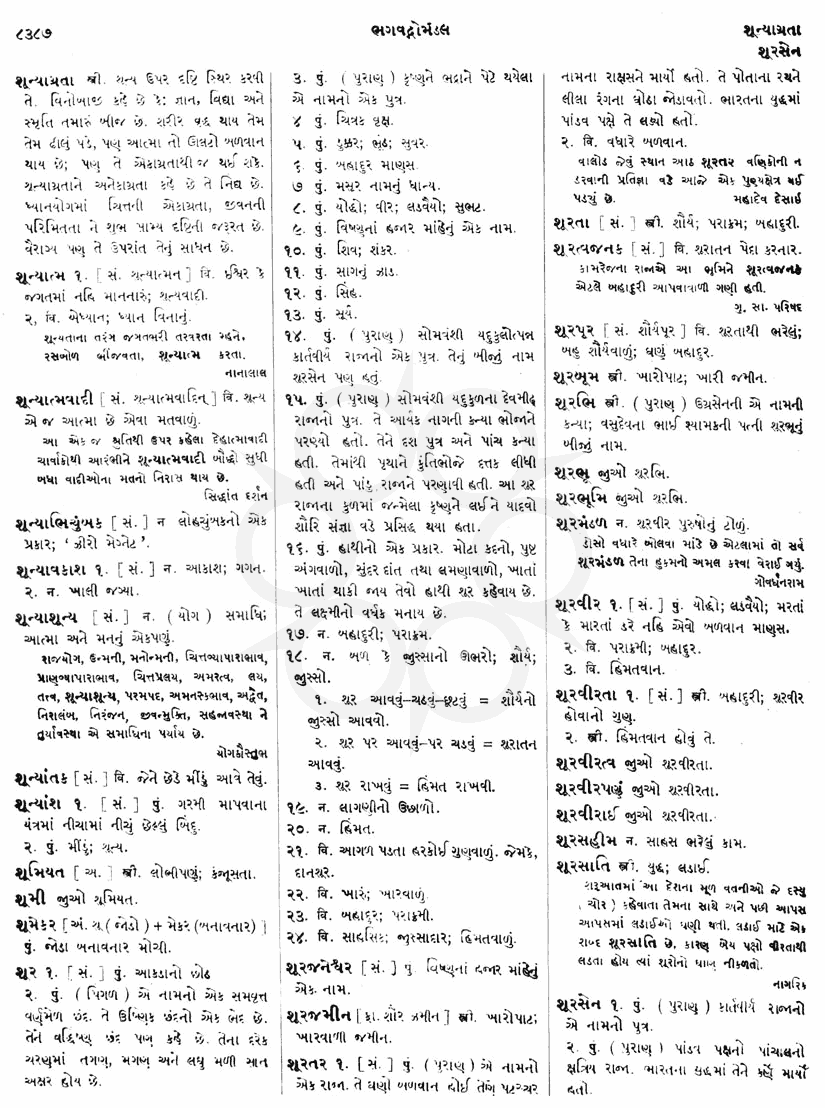 ૮૩૮૭
ભગવદ્ગોમંડલ
શૂન્યાગ્રતા
શૂરસેન
શૂન્યાગ્રતા સ્ત્રી. શૂન્ય ઉપર દૃષ્ટિ સ્થિર કરવી
તે. વિનોબાજી કહે છે કે: જ્ઞાન, વિદ્યા અને
સ્મૃતિ તમારું બીજ છે. શરીર વૃદ્ધ થાય તેમ
તેમ ઢીલું પડે, પણ આત્મા તો ઊલટો બળવાન
થાય છે; પણ તે એકાગ્રતાથી જ થઈ શકે.
શૂન્યાગ્રતાને અનેકાગ્રતા કહે છે તે નિંદ્ય છે.
ધ્યાનયોગમાં ચિત્તની એકાગ્રતા, જીવનની
પરિમિતતા ને શુભ સામ્ય દૃષ્ટિની જરૂરત છે.
વૈરાગ્ય પણ તે ઉપરાંત તેનું સાધન છે.
શૂન્યાત્મ ૧. [ સં. શૂન્યાત્મન્ ] વિ. ઈશ્વર કે
જગતમાં નહિ માનનારું; શૂન્યવાદી.
૨. વિ. બેધ્યાન; ધ્યાન વિનાનું.
શૂન્યતાના તરંગ જગતભરી તરવરતા મ્હને,
રસભોળ ભીંજવતા, શૂન્યાત્મ કરતા.
નાનાલાલ
શૂન્યાત્મવાદી [ સં. શૂન્યાત્મવાદિન્ ] વિ. શૂન્ય
એ જ આત્મા છે એવા મતવાળું.
આ એક જ શ્રુતિથી ઉપર કહેલા દેહાત્મવાદી
ચાર્વાકોથી આરંભીને શૂન્યાત્મવાદી બૌદ્ધો સુધી
બધા વાદીઓના મતનો નિરાસ થાય છે.
સિદ્ધાંત દર્શન
શૂન્યાભિચુંબક [ સં. ] ન લોહચુંબકનો એક
પ્રકાર; ‘ ઝીરો મેગ્નેટ’.
શૂન્યાવકાશ ૧. [ સં. ] ન. આકાશ; ગગન.
૨. ન. ખાલી જગ્યા.
શૂન્યાશૂન્ય [ સં. ] ન. ( યોગ ) સમાધિ;
આત્મા અને મનનું એકપણું.
રાજયોગ, ઉન્મની, મનોન્મની, ચિત્તવ્યાપારાભાવ,
પ્રાણવ્યાપારાભાવ, ચિત્તપ્રલય, અમરત્વ, લય,
તત્ત્વ, શૂન્યાશૂન્ય, પરમપદ, અમનસ્કભાવ, અદ્વૈત,
નિરાલંબ, નિરંજન, જીવન્મુક્તિ, સહજાવસ્થા ને
તુર્યાવસ્થા એ સમાધિના પર્યાય છે.
યોગકૌસ્તુભ
શૂન્યાંતક [ સં. ] વિ. જેને છેડે મીંડું આવે તેવું.
શૂન્યાંશ ૧. [ સં. ] પું. ગરમી માપવાના
યંત્રમાં નીચામાં નીચું છેલ્લું બિંદુ.
૨. પું. મીંડું; શૂન્ય.
શૂમિયત [ અ. ] સ્ત્રી. લોભીપણું; કંજૂસતા.
શૂમી જુઓ શૂમિયત.
શૂમેકર [ અં. શૂ ( જોડો ) + મેકર (બનાવનાર) ]
પું. જોડા બનાવનાર મોચી.
શૂર ૧. [ સં. ] પું. આકડાનો છોડ
૨. પું. ( પિંગળ ) એ નામનો એક સમવૃત્ત
વર્ણમેળ છંદ. તે ઉષ્ણિક છંદનો એક ભેદ છે.
તેને છંદ પણ કહે છે. તેના દરેક
ચરણમાં તગણ, મગણ અને લઘુ મળી સાત
અક્ષર હોય છે.
૩. પું. ( પુરાણ ) કૃષ્ણને ભદ્રાને પેટે થયેલા
એ નામનો એક પુત્ર.
૪ પું. ચિત્રક વૃક્ષ.
૫. પું. ડુક્કર; ભુંડ; સુવર.
૬. પું. બહાદુર માણસ.
૭ પું. મસૂર નામનું ધાન્ય.
૮. પું. યોદ્ધો; વીર; લડવૈયો; સુભટ.
૯. પું. વિષ્ણુનાં હજાર માંહેનું એક નામ.
૧૦. પું. શિવ; શંકર.
૧૧. પું. સાગનું ઝાડ.
૧૨. પું. સિંહ.
૧૩. પું. સૂર્ય.
૧૪. પું. ( પુરાણ ) સોમવંશી યદુકુલોત્પન્ન
કાર્તવીર્ય રાજાનો એક પુત્ર. તેનું બીજું નામ
શૂરસેન પણ હતું.
૧૫. પું. ( પુરાણ ) સોમવંશી યદુકુળના દેવમીઢ
રાજાનો પુત્ર. તે આર્યક નાગની કન્યા ભોજાને
પરણ્યો હતો. તેને દશ પુત્ર અને પાંચ કન્યા
હતી. તેમાંથી પૃથાને કુંતિભોજે દત્તક લીધી
હતી અને પાંડુ રાજાને પરણાવી હતી. આ શૂર
રાજાના કુળમાં જન્મેલા કૃષ્ણને લઈ ને યાદવો
શૌરિ સંજ્ઞા વડે પ્રસિદ્ધ થયા હતા.
૧૬. પું. હાથીનો એક પ્રકાર. મોટા કદનો, પુષ્ટ
અંગવાળો, સુંદર દાંત તથા લમણાવાળો, ખાતાં
ખાતાં થાકી જાય તેવો હાથી શૂર કહેવાય છે.
તે લક્ષ્મીનો વર્ધક મનાય છે.
૧૭. ન. બહાદુરી; પરાક્રમ.
૧૮. ન. બળ કે જુસ્સાનો ઊભરો; શૌર્ય;
જુસ્સો.
૧. શૂર આવવું–ચઢવું–છૂટવું = શૌર્યનો
જુસ્સો આવવો.
૨. શૂર પર આવવું–પર ચડવું = શૂરાતન
આવવું.
૩. શૂર રાખવું = હિંમત રાખવી.
૧૯. ન. લાગણીનો ઉછાળો.
૨૦. ન. હિંમત.
૨૧. વિ. આગળ પડતા હરકોઈ ગુણવાળું. જેમકે,
દાનશૂર.
૨૨. વિ. ખારું; ખારવાળું.
૨૩. વિ. બહાદુર; પરાક્રમી.
૨૪. વિ. સાહસિક; જુસ્સાદાર; હિંમતવાળું.
શૂરજનેશ્વર [ સં. ] પું. વિષ્ણુનાં હજાર માંહેનું
એક નામ.
શૂરજમીન [ ફા. શૌર ઝમીન ] સ્ત્રી. ખારોપાટ;
ખારવાળી જમીન.
શૂરતર ૧. [ સં. ] પું. ( પુરાણ ) એ નામનો
એક રાજા. તે ઘણો બળવાન હોઈ તેણે પટચ્ચર
નામના રાક્ષસને માર્યો હતો. તે પોતાના રથને
લીલા રંગના ઘોડા જોડાવતો. ભારતના યુદ્ધમાં
પાંડવ પક્ષે તે લડ્યો હતો.
૨. વિ. વધારે બળવાન.
વાલોડ જેવું સ્થાન આઠ શૂરતર વણિકોની ન
ડરવાની પ્રતિજ્ઞા વડે આજે એક પુણ્યક્ષેત્ર થઈ
પડ્યું છે.
મહાદેવ દેસાઈ
શૂરતા [ સં. ] સ્ત્રી. શૌર્ય; પરાક્રમ; બહાદુરી.
શૂરત્વજનક [ સં. ] વિ. શૂરાતન પેદા કરનાર.
કામરેજના રાજાએ આ ભૂમિને શૂરત્વજનક
એટલે બહાદુરી આપવાવાળી ગણી હતી.
ગુ. સા. પરિષદ
શૂરપૂર [ સં. શૌર્યપૂર ] વિ. શૂરતાથી ભરેલું;
બહુ શૌર્યવાળું; ઘણું બહાદુર.
શૂરબૂમ સ્ત્રી. ખારોપાટ; ખારી જમીન.
શૂરભિ સ્ત્રી. ( પુરાણ ) ઉગ્રસેનની એ નામની
કન્યા; વસુદેવના ભાઈ શ્યામકની પત્ની શૂરભૂનું
બીજું નામ.
શૂરભૂ જુઓ શૂરભિ.
શૂરભૂમિ જુઓ શૂરભિ.
શૂરમંડળ ન. શૂરવીર પુરુષોનું ટોળું.
ડોસો વધારે બોલવા માંડે છે એટલામાં તો સર્વ
શૂરમંડળ તેના હુકમનો અમલ કરવા વેરાઈ ગયું.
ગોવર્ધનરામ
શૂરવીર ૧. [ સં. ] પું. યોદ્ધો; લડવૈયો; મરતાં
કે મારતાં ડરે નહિ એવો બળવાન માણસ.
૨. વિ. પરાક્રમી; બહાદુર.
૩. વિ. હિંમતવાન.
શૂરવીરતા ૧. [ સં. ] સ્ત્રી. બહાદુરી; શૂરવીર
હોવાનો ગુણ.
૨. સ્ત્રી. હિંમતવાન હોવું તે.
શૂરવીરત્વ જુઓ શૂરવીરતા.
શૂરવીરપણું જુઓ શૂરવીરતા.
શૂરવીરાઈ જુઓ શૂરવીરતા.
શૂરસહીમ ન. સાહસ ભરેલું કામ.
શૂરસાતિ સ્ત્રી. યુદ્ધ; લડાઈ.
શરૂઆતમાં આ દેશના મૂળ વતનીઓ જે દસ્યુ
( ચોર ) કહેવાતા તેમના સાથે અને પછી આપસ
આપસમાં લડાઈઓ ઘણી થતી. લડાઈ માટે એક
શબ્દ શૂરસાતિ છે. કારણ બેય પક્ષો વીરતાથી
લડતા હોય ત્યાં શૂરોનો ઘાણ નીકળતો.
નાગરિક
શૂરસેન ૧. પું. ( પુરાણ ) કાર્તવીર્ય રાજાનો
એ નામનો પુત્ર.
૨. પું. ( પુરાણ ) પાંડવ પક્ષનો પાંચાલનો
ક્ષત્રિય રાજા. ભારતના યુદ્ધમાં તેને કર્ણે માર્યો
હતો.